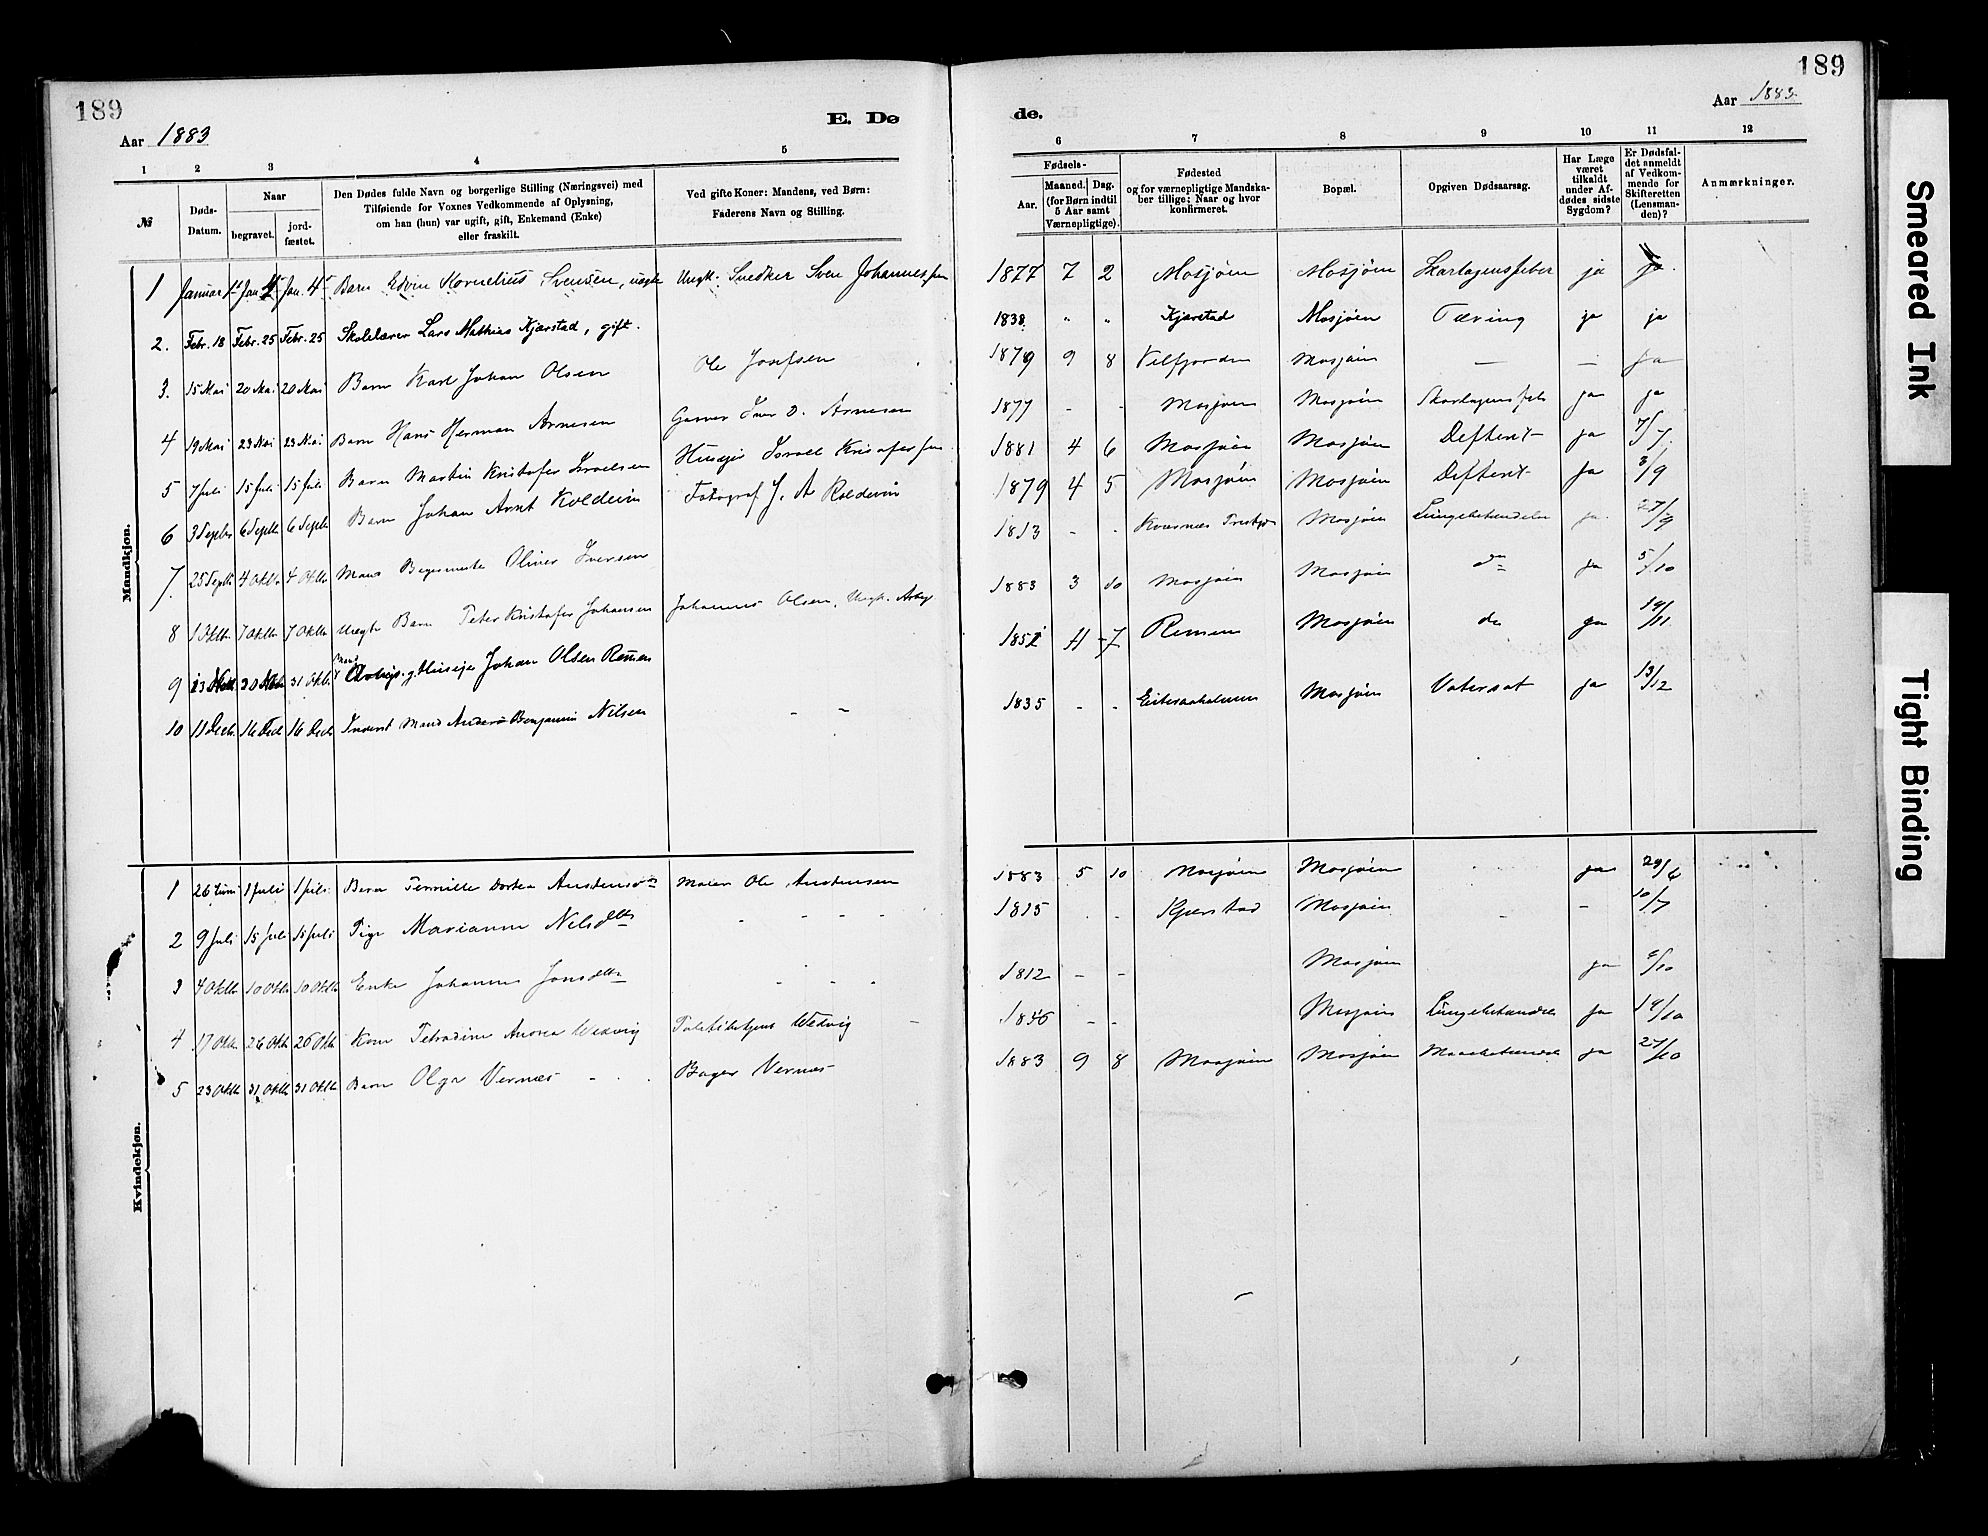 189
Aar 1883
E. Dø
1 2 3 4 5
№
Døds-Datum.
Naar
begravet.
jordfæstet.
Den Dødes fulde Navn og borgerlige Stilling (Næringsvei) med
Tilføiende for Voxnes Vedkommende af Oplysning,
om han (hun) var ugift, gift, Enkemand (Enke)
eller fraskilt.
Ved gifte Koner: Mandens, ved Børn:
Faderens Navn og Stilling.
Mandkjøn.
1 Januar Jan. 4 Barn Edvin Kornelius Svensen, uægte Ungk. Snedker Sven Johannessen
2. Febr. 18 Febr. 25 Febr. 25 Skolelærer Lars Mathias Kjærstad, gift.
3. 15 Mai 20 Mai 20 Mai Barn Karl Johan Olsen Ole Josefsen
4 19 Mai 23 Mai 23 Mai Barn Hans Herman Arnesen Garver Iver D. Arnesen
5 7 Juli 15 Juli 15 Juli Barn Martin Kristofer Israelsen Huseier Israel Kristofersen
6 3 Septbr 6 Septbr 6 Septbr Barn Johan Arnt Koldevin Fotograf J. A Koldevin
7. 25 Septb 4 Oktbr 4 Oktbr Mand Oliver Iversen
8 1 Oktbr 7 Oktbr 7 Oktbr Uægte Barn Peter Kristofer Johansen Johannes Olsen, Ungk. Arbeid
9 23 30 31 Oktb. Mand Arbeids. g. Huseier Johan Olsen Remen
10 11 Decb. 16 Decb 16 Decb Inderst Mand Anders Benjamin Nilsen - -
Kvindekjøn.
1 26 Juni 1 Juli 1 Juli Barn Pernille Dortea Austensen Maler Ole Austensen
2 9 Juli 15 Juli 15 Juli Pige Marianne Nilsdtr
3 4 Oktbr 10 Oktbr 10 Oktbr Enke Johanna Jonsdtr
4 17 Oktbr 26 Oktb 26 Oktb Kone Petrodine Anorea Wedvig Wedvig
5 23 Oktbr 31 Oktbr 31 Oktbr Barn Olga Vernæs Bager Vernæs
189
Aar 1883.
de.
6 7 8 9 10 11 12
Fødsels-
Aar.
Maaned. Dag.
(for Børn indtil
5 Aar samt
Værnepligtige).
Fødested
og for værnepligtige Mandskaber tillige: Naar og hvor
konfirmeret.
Bopæl.
Opgiven Dødsaarsag.
Har Læge
været
tilkaldt
under Afdødes sidste
Sygdom?
Er Dødsfaldet anmeldt
af Vedkommende for
Skifteretten
(Lensmanden)?
Anmærkninger.
1877 7 2 Mosjøen Mosjøen Skarlagensfeber ja ja.
1838 " " Kjærstad Mosjøen Tæring ja ja
1879 9 8 Velfjorden Mosjøen — — ja
1877 - - Mosjøen Mosjøen Skarlagensfeb ja ja
1881 4 6 Mosjøen Mosjøen Defterit ja 7/7.
1879 4 5 Mosjøen Mosjøen Defterit ja 3/9
1813 - - Kværnæs Mosjøen Lungebetændelse ja 27/9
1883 3 10 Mosjøen Mosjøen do ja 5/10
1851 11 7 Remen Mosjøen do ja
1835 - - Mosjøen Vatersot ja 13/12
1883 5 10 Mosjøen Mosjøen ja 29/6
1815 - - Kjærstad Mosjøen - - 10/7
1812 - - Mosjøen ja 6/10
1846 - - Mosjøen Lungebetændelse ja 19/10
1883 9 8 Mosjøen Mosjøen ja 27/10
Smeared Ink
Tight Binding